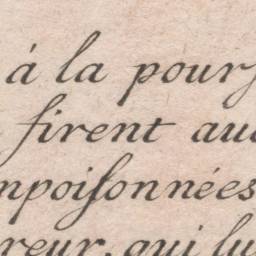 á la pourſ
firent au
npoiſonnées
reur, qui lu